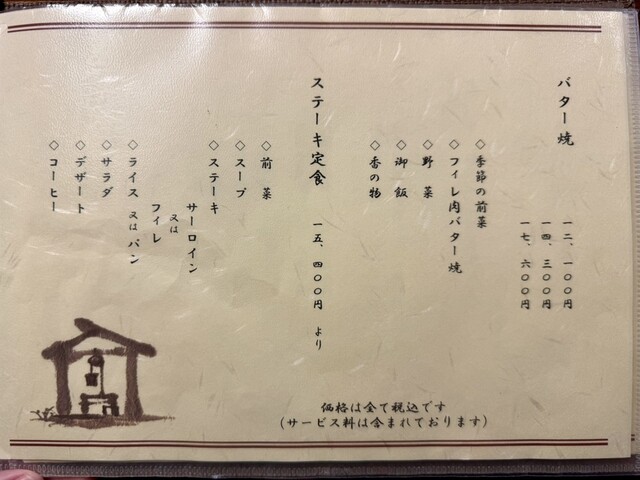 バター焼
一二、一〇〇円
一四、三〇〇円
一七、六〇〇円
◇季節の前菜
◇フィレ肉バター焼
◇野菜
◇御飯
◇香の物
ステーキ定食
一五、四〇〇円 より
◇前菜
◇スープ
◇ステーキ
サーロイン
又は
フィレ
◇ライス 又は パン
◇サラダ
◇デザート
◇コーヒー
価格は全て税込です
(サービス料は含まれております)